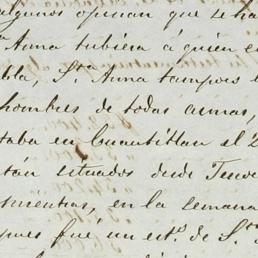 algunos opinan que se ha
Anna tubiera á quien
bla, S.ta Anna tampoco
hombres de todas armas,
taba en Cuautitlan el 2
tán situados desde
mientras, en la semana
pues fué un est.o de S.